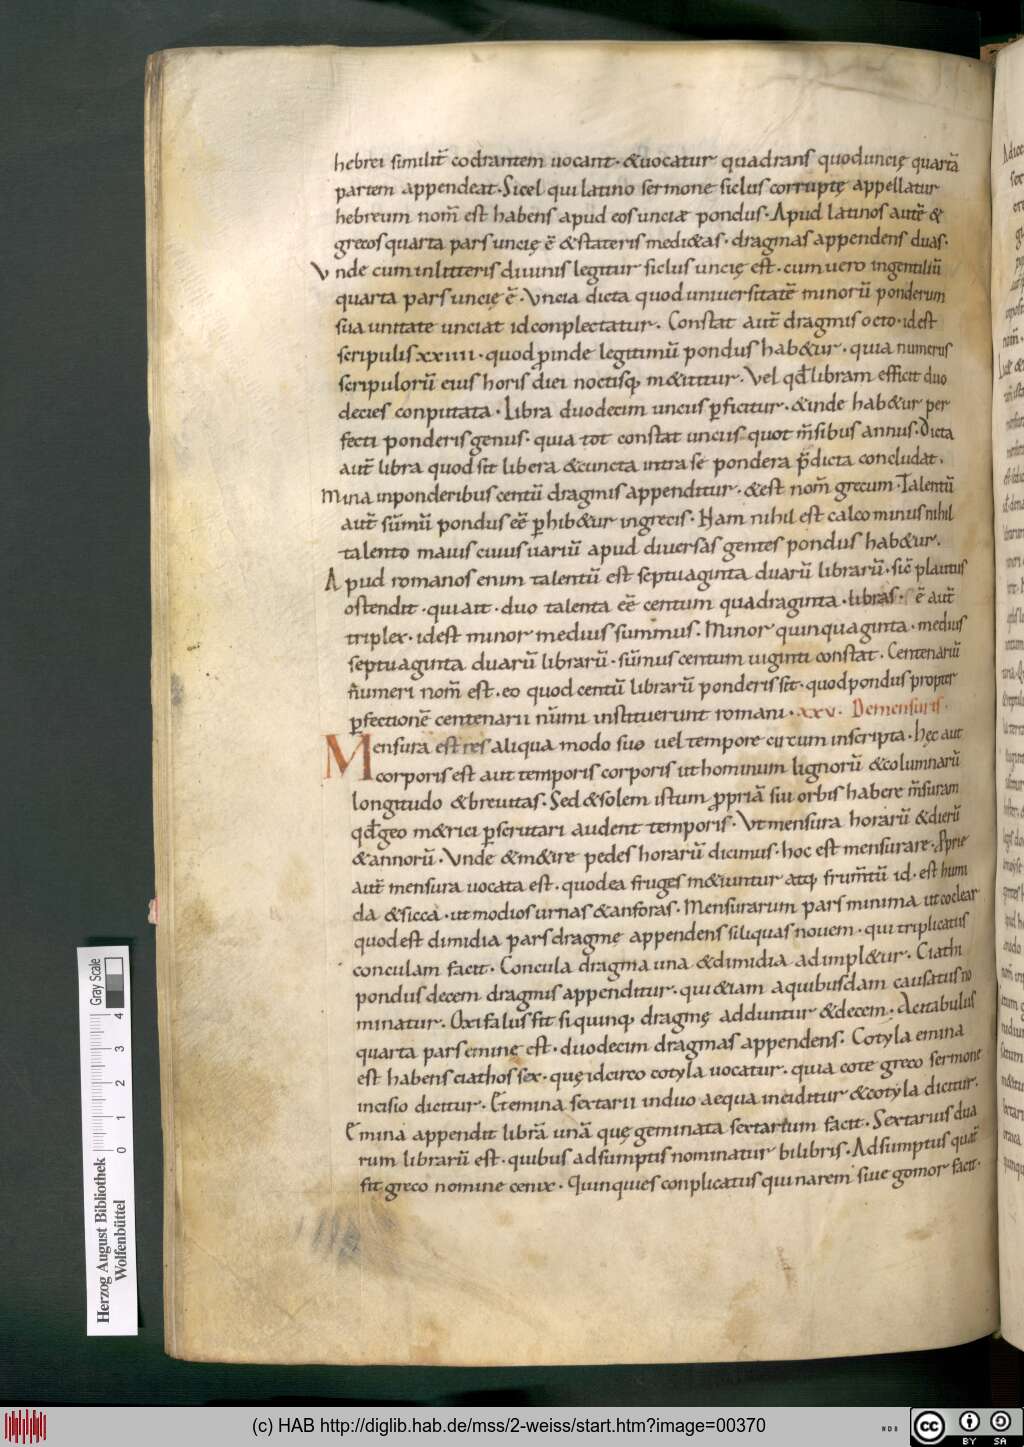 hebrei similit̄ codrantem uocant· &uocatur quadrans quoduncię quartā
partem appendeat· Sicel qui latino sermone siclus corruptę appellatur
hebreum nom̄ est habens apud eos unciæ pondus· Apud latinos autē &
grecos quarta pars uncię ē &stateris medi&as· dragmas appendens duas·
Vnde cum inlitteris diuinis legitur siclus uncię est· cum uero ingentiliū
quarta pars uncię ē· Vncia dicta quod uniuersitatē minorū ponderum
sua unitate unciat idconplectatur· Constat aut̄ dragmis octo· idest
scripulis xxiiii· quod ꝓinde legitimū pondus hab&ur· quia numerus
scripulorū eius horis diei noctisq; m&ititur· Vel qđ libram efficit duo
decies conputata· Libra duodecim unciis ꝑficitur· &inde hab&ur per
fecti ponderis genus· quia tot constat unciis quot m̄sibus annus· Dicta
aut̄ libra quod sit libera &cuncta intra se pondera p̄dicta concludat·
Mina inponderibus centū dragmis appenditur· &est nom̄ grecum· Talentū
aut̄ sūmū pondus eē ꝑhib&ur ingrecis· Nam nihil est calco minus nihil
talento maius cuius uariū apud diuersas gentes pondus hab&ur·
Apud romanos enim talentū est septuaginta duarū librarū· sic̄ plautus
ostendit· qui ait· duo talenta eē centum quadraginta· libras· ē aut̄
triplex· idest minor medius summus· Minor quinquaginta· medius
septuaginta duarū librarū· sūmus centum uiginti constat· Centenariū
numeri nom̄ est· eo quod centū librarū ponderis sit· quod pondus propter
ꝑfectionē centenarii nūmi instituerunt romani· xxv· Demensuris·
Mensura est res aliqua modo suo uel tempore circum inscripta· hęc aut
corporis est aut temporis corporis ut hominum lignorū &columnarū
longitudo &breuitas· Sed &solem istum ꝓpriā sui orbis habere m̄suram
qđ geo m&rici ꝑscrutari audent temporis· Vt mensura horarū &dierū
&annorū· Vnde &m&ire pedes horarū dicimus· hoc est mensurare· Ꝓprie
aut̄ mensura uocata est· quodea fruges m&iuntur atq; frum̄tū id· est humi
da &sicca· ut modios urnas &anforas· Mensurarum pars minima ut coclear
quodest dimidia pars dragmę appendens siliquas nouem· qui triplicatus
conculam facit· Concula dragma una &dimidia adimpl&ur· Ciathi
pondus decem dragmis appenditur· qui &iam aquibusdam causatus no
minatur· Oxifalus fit si quinq; dragmę adduntur &decem· Acitabulus
quarta pars eminę est· duodecim dragmas appendens· Cotyla emina
est habens ciathos sex· quę idcirco cotyla uocatur· quia cote greco sermone
incisio dicitur· Et emina sextarii induo aequa inciditur &cotyla dicitur·
Emina appendit librā unā quę geminata sextarium facit· Sextarius dua
rum librarū est· quibus adsumptis nominatur bilibris· Adsumptus quat̄
fit greco nomine cenix· Quinquies conplicatus qui narem siue gomor facit·
Gray Scale
0 1 2 3 4
Herzog August Bibliothek
Wolfenbüttel
(c) HAB http://diglib.hab.de/mss/2-weiss/start.htm?image=00370
cc BY SA